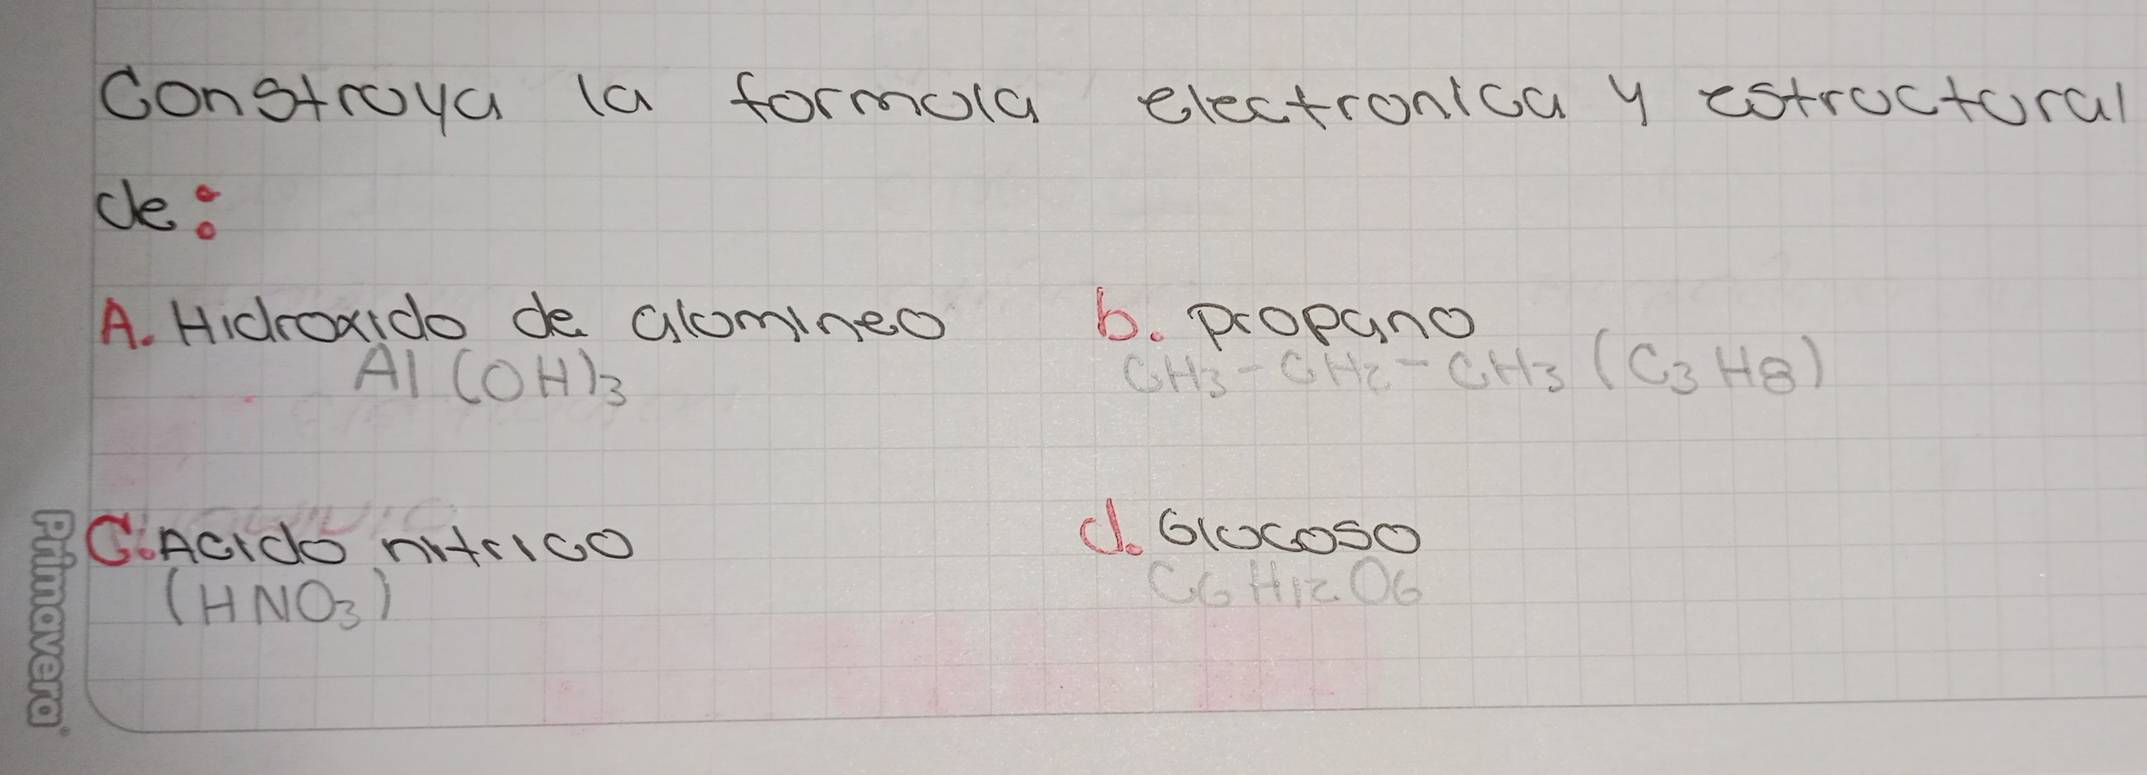 Construya la formula electronica y estructural
de:
A. Hidroxido de alumineo
Al(OH)3
b. propano
CH3-CH2-CH3 (C3H8)
C. Acido nitrico
(HNO3)
d. Glucoso
C6H12O6
Primavera